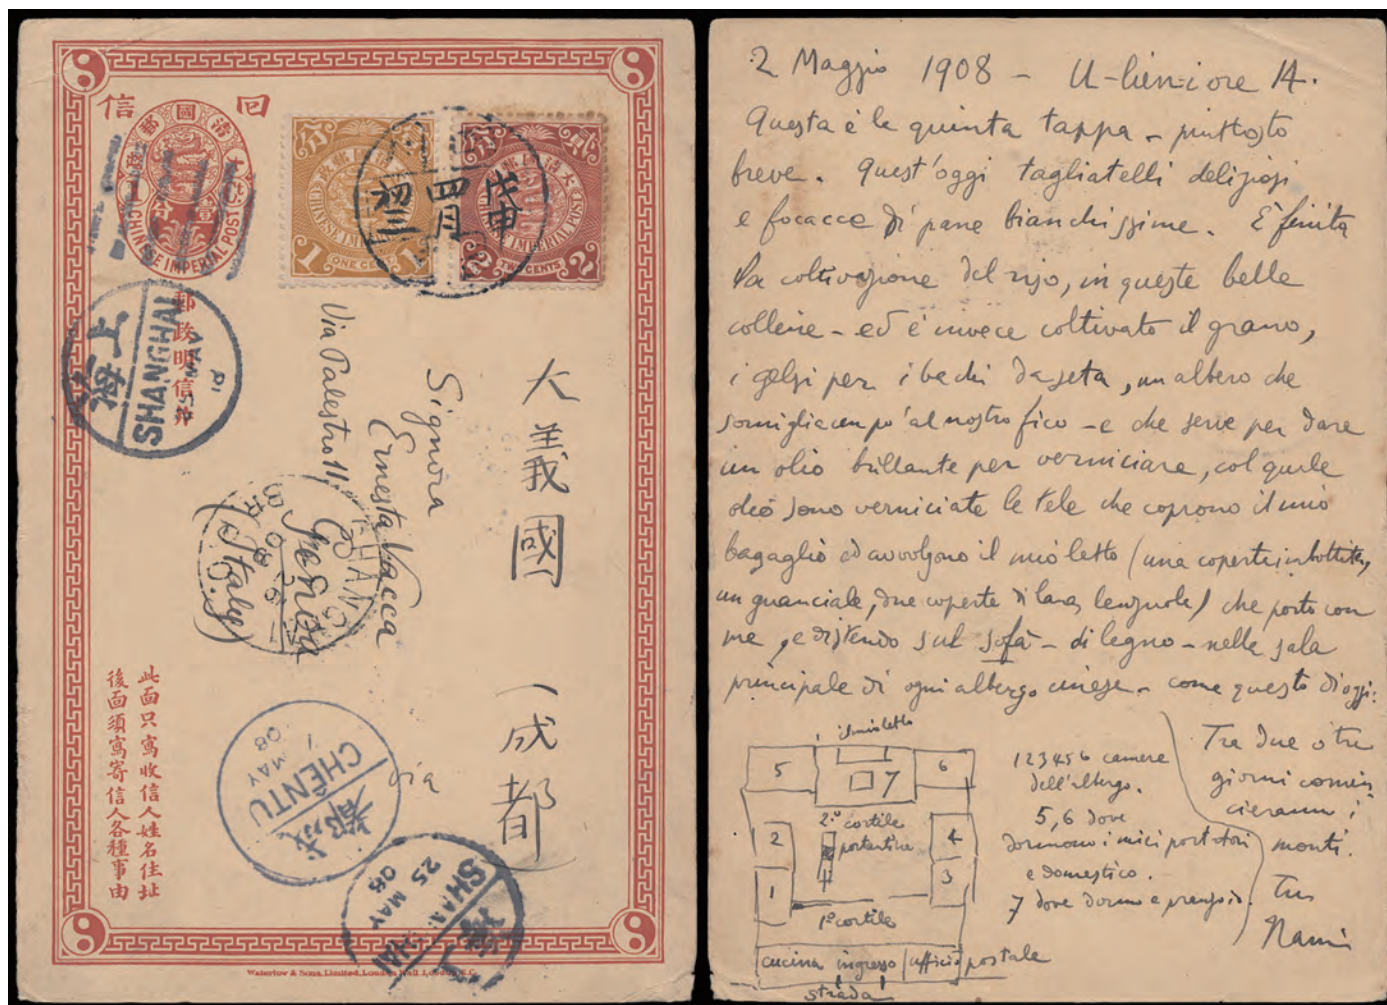 回
信
大清國郵政
CHINESE IMPERIAL POST
郵政明信片
分
CHINESE IMPERIAL
1 ONE CENT 1
貳
分
CHINESE IMPERIAL POST
2 TWO CENTS 2
戊申
四月
初三
上海
SHANGHAI
MAY
大義國
Signora
Ernesta Vacca
Via Palestro 11
Genova
(Italy)
成都
via
成都
CHÊNTU
1
MAY
08
SHANGHAI
25 MAY
08
此面只寫收信人姓名住址
後面須寫寄信人各種事由
Waterlow & Sons Limited, London Wall, London, E.C.
2 Maggio 1908 – U-lien-i ore 14.
Questa è la quinta tappa – piuttosto
breve. Quest'oggi tagliatelli deliziosi
e focacce di pane bianchissime. È finita
la coltivazione del riso, in queste belle
colline – ed è invece coltivato il grano,
i gelsi per i bachi da seta, un albero che
somiglia un po' al nostro fico – e che serve per dare
un olio brillante per verniciare, col quale
olio sono verniciate le tele che coprono il mio
bagaglio ed avvolgono il mio letto (una coperta imbottita,
un guanciale, due coperte di lana, lenzuola) che porto con
me, e distendo sul sofà – di legno – nella sala
principale di ogni albergo cinese – come questo di oggi:
il mio letto
5
7
6
2º cortile
portantina
2
4
1
3
1º cortile
cucina ingresso ufficio postale
strada
1 2 3 4 5 6 camere
dell'albergo.
5, 6 dove
dormono i miei portatori
e domestico.
7 dove dormo e pranzo.
Tra due o tre
giorni comin-
cieranno i
monti.
Tuo
Nanni